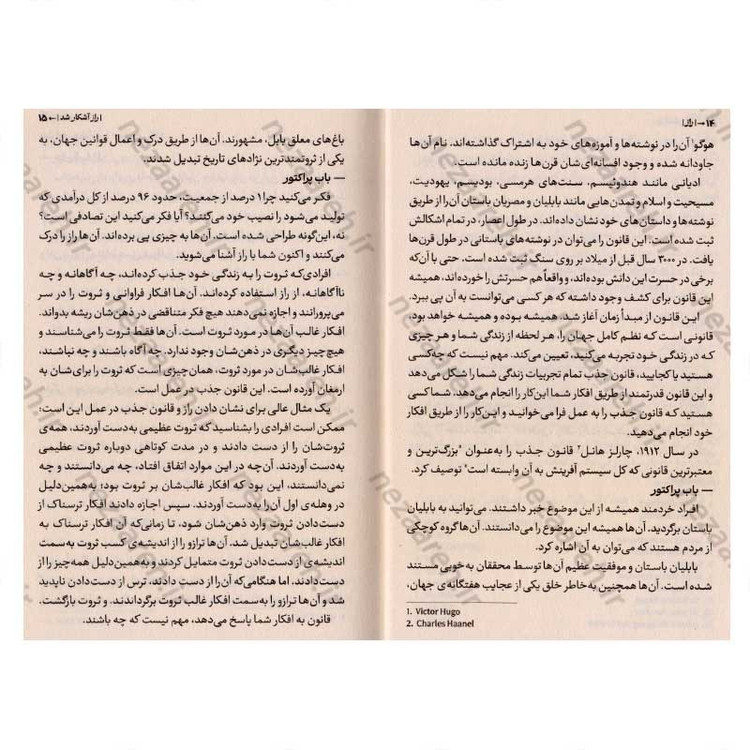 ۱۴ → | راز |
هوگو¹ آن‌را در نوشته‌ها و آموزه‌های خود به اشتراک گذاشته‌اند. نام آن‌ها
جاودانه شده و وجود افسانه‌ای‌شان قرن‌ها زنده مانده است.
ادیانی مانند هندوئیسم، سنت‌های هرمسی، بودیسم، یهودیت،
مسیحیت و اسلام و تمدن‌هایی مانند بابلیان و مصریان باستان آن‌را از طریق
نوشته‌ها و داستان‌های خود نشان داده‌اند. در طول اعصار، در تمام اشکالش
ثبت شده است. این قانون را می‌توان در نوشته‌های باستانی در طول قرن‌ها
یافت. در ۳۰۰۰ سال قبل از میلاد بر روی سنگ ثبت شده است. حتی با آن‌که
برخی در حسرت این دانش بوده‌اند، و واقعاً هم حسرتش را خورده‌اند، همیشه
این قانون برای کشف وجود داشته که هر کسی می‌توانست به آن پی ببرد.
این قانون از مبدأ زمان آغاز شد. همیشه بوده و همیشه خواهد بود،
قانونی است که نظم کامل جهان را، هر لحظه از زندگی شما و هر چیزی
که در زندگی خود تجربه می‌کنید، تعیین می‌کند. مهم نیست که چه‌کسی
هستید یا کجایید، قانون جذب تمام تجربیات زندگی شما را شکل می‌دهد
و این قانون قدرتمند از طریق افکار شما این‌کار را انجام می‌دهد. شما کسی
هستید که قانون جذب را به عمل فرا می‌خوانید و این‌کار را از طریق افکار
خود انجام می‌دهید.
در سال ۱۹۱۲، چارلز هانل² قانون جذب را به‌عنوان "بزرگ‌ترین و
معتبرترین قانونی که کل سیستم آفرینش به آن وابسته است" توصیف کرد.
— باب پراکتور
افراد خردمند همیشه از این موضوع خبر داشتند. می‌توانید به بابلیان
باستان برگردید. آن‌ها همیشه این موضوع را می‌دانستند. آن‌ها گروه کوچکی
از مردم هستند که می‌توان به آن اشاره کرد.
بابلیان باستان و موفقیت عظیم آن‌ها توسط محققان به‌خوبی مستند
شده است. آن‌ها همچنین به‌خاطر خلق یکی از عجایب هفتگانه‌ی جهان،
1. Victor Hugo
2. Charles Haanel
| راز آشکار شد | ← ۱۵
باغ‌های معلق بابل، مشهورند. آن‌ها از طریق درک و اعمال قوانین جهان، به
یکی از ثروتمندترین نژادهای تاریخ تبدیل شدند.
— باب پراکتور
فکر می‌کنید چرا ۱ درصد از جمعیت، حدود ۹۶ درصد از کل درآمدی که
تولید می‌شود را نصیب خود می‌کنند؟ آیا فکر می‌کنید این تصادفی است؟
نه، این‌گونه طراحی شده است. آن‌ها به چیزی پی برده‌اند. آن‌ها راز را درک
می‌کنند و اکنون شما با راز آشنا می‌شوید.
افرادی‌که ثروت را به زندگی خود جذب کرده‌اند، چه آگاهانه و چه
ناآگاهانه، از راز استفاده کرده‌اند. آن‌ها افکار فراوانی و ثروت را در سر
می‌پرورانند و اجازه نمی‌دهند هیچ فکر متناقضی در ذهن‌شان ریشه بدواند.
افکار غالب آن‌ها در مورد ثروت است. آن‌ها فقط ثروت را می‌شناسند و
هیچ‌چیز دیگری در ذهن‌شان وجود ندارد. چه آگاه باشند و چه نباشند،
افکار غالب‌شان در مورد ثروت، همان‌چیزی است که ثروت را برای‌شان به
ارمغان آورده است. این قانون جذب در عمل است.
یک مثال عالی برای نشان دادن راز و قانون جذب در عمل این است:
ممکن است افرادی را بشناسید که ثروت عظیمی به‌دست آوردند، همه‌ی
ثروت‌شان را از دست دادند و در مدت کوتاهی دوباره ثروت عظیمی
به‌دست آوردند. آن‌چه در این موارد اتفاق افتاد، چه می‌دانستند و چه
نمی‌دانستند، این بود که افکار غالب‌شان بر ثروت بود؛ به‌همین‌دلیل
در وهله‌ی اول آن‌را به‌دست آوردند. سپس اجازه دادند افکار ترسناک از
دست‌دادن ثروت وارد ذهن‌شان شود، تا زمانی‌که آن افکار ترسناک به
افکار غالب‌شان تبدیل شد. آن‌ها ترازو را از اندیشه‌ی کسب ثروت به‌سمت
اندیشه‌ی از دست‌دادن ثروت متمایل کردند و به‌همین‌دلیل همه‌چیز را از
دست‌دادند. اما هنگامی‌که آن‌را از دست دادند، ترس از دست‌دادن ناپدید
شد و آن‌ها ترازو را به‌سمت افکار غالب ثروت برگرداندند. و ثروت بازگشت.
قانون به افکار شما پاسخ می‌دهد، مهم نیست که چه باشند.
nezaareh.ir